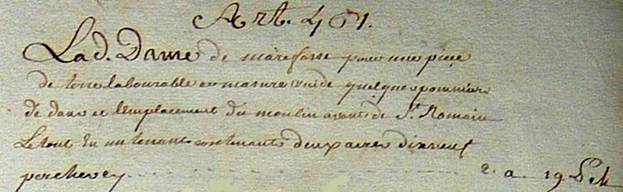 Art. 461.
Lad. Dame de marefosse pour une piece
de terre labourable et masure vuide quelques pommiers
de dans et l'emplacement du moulin avant de St. Romain
Le tout en un tenant contenants deux acres dix neuf
perches cy - - - - - - - - - - - 2. a. 19. Pch